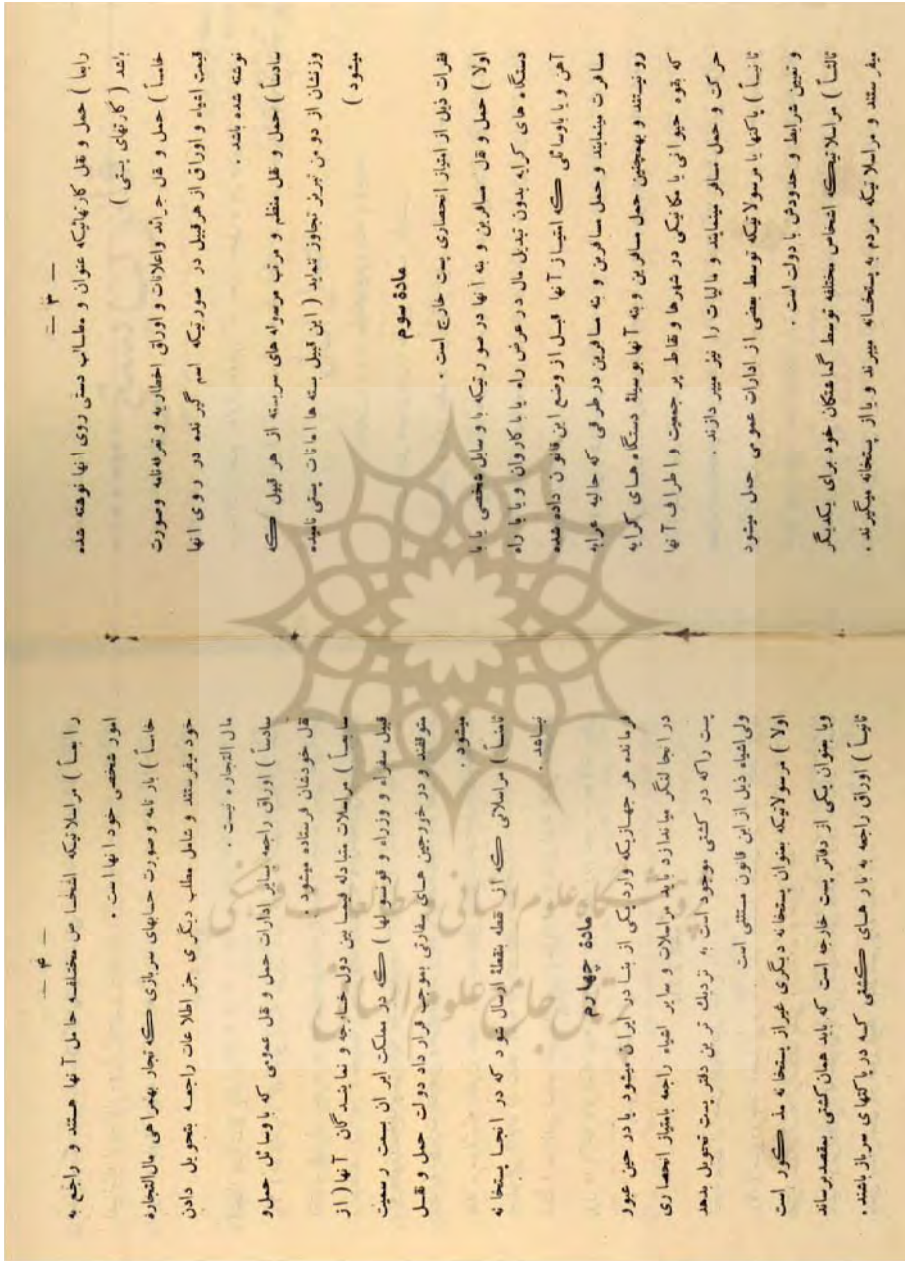 — ۳ —
رابعاً ) حمل و نقل کارتهائیکه عنوان و مطالب دستی روی انها نوشته شده
باشد ( کارتهای پستی )
خامساً ) حمل و نقل جرائد واعلانات و اوراق اخطاریه و تعرفه‌نامه وصورت
قیمت اشیاء و اوراق از هرقبیل در صورتیکه اسم گیرنده در روی انها
نوشته شده باشد .
سادساً ) حمل و نقل منظم و مرتب مرسوله های سربسته از هر قبیل که
وزنشان از دو من تبریز تجاوز ننماید ( این قبیل بسته ها امانات پستی نامیده
میشود )
مادهٔ سوم
فقرات ذیل از امتیاز انحصاری پست خارج است .
اولا ) حمل و نقل مسافرین و بنه انها در صورتیکه با وسایل شخصی یا با
دستگاه های کرایه بدون تبدیل مال در عرض راه یا با کاروان و یا با راه
آهن و یا باوسائلی که امتیاز آنها قبل از وضع این قانون داده شده
مسافرت مینمایند و حمل مسافرین و بنه مسافرین در طرقی که حالیه عرابه
رو نیستند و بهمچنین حمل مسافرین و بنه آنها بوسیلهٔ دستگاه های کرایه
که بقوه حیوانی یا مکانیکی در شهرها و نقاط پر جمعیت و اطراف آنها
حرکت و حمل مسافر مینمایند و مالیات را نیز میپردازند .
ثانیاً ) پاکتها یا مرسولاتیکه توسط بعضی از ادارات عمومی حمل میشود
و تعیین شرایط و حدودش با دولت است .
ثالثاً ) مراسلاتیکه اشخاص مختلفه توسط گماشتگان خود برای یکدیگر
میفرستند و مراسلاتیکه مردم به پستخانه میبرند و یا از پستخانه میگیرند .
— ۴ —
رابعاً ) مراسلاتیکه اشخاص مختلفه حامل آنها هستند و راجع به
امور شخصی خود انها است .
خامساً ) بارنامه وصورت حسابهای سربازی که تجار بهمراهی مال‌التجاره
خود میفرستند و شامل مطلب دیگری جز اطلاعات راجعه بتحویل دادن
مال التجاره نیست .
سادساً ) اوراق راجعه بسایر ادارات حمل و نقل عمومی که با وسائل حمل و
نقل خودشان فرستاده میشود .
سابعاً ) مراسلات متبادله فیمابین دول خارجه و نمایندگان آنها ( از
قبیل سفراء و وزراء و قونسولها ) که در مملکت ایران بسمت رسمیت
متوقفند و در خورجین های سفارتی بموجب قرار داد دولت حمل و نقل
میشود .
ثامناً ) مراسلاتی که از نقطه بنقطهٔ ارسال شود که در انجا پستخانه
نباشد .
مادهٔ چهارم
فرمانده هر جهازیکه وارد یکی از بنادر ایران میشود یا در حین عبور
در انجا لنگر میاندازد باید مراسلات و سایر اشیاء راجعه بامتیاز انحصاری
پست را که در کشتی موجود است به نزدیک ترین دفتر پست تحویل بدهد
ولی اشیاء ذیل از این قانون مستثنی است
اولا ) مرسولاتیکه بعنوان پستخانه دیگری غیر از پستخانه مذکور است
ویا بعنوان یکی از دفاتر پست خارجه است که باید همان کشتی بمقصد برساند
ثانیاً ) اوراق راجعه به بارهای کشتی که در پاکتهای سرباز باشند .
پژوهشگاه علوم انسانی و مطالعات فرهنگی
پرتال جامع علوم انسانی